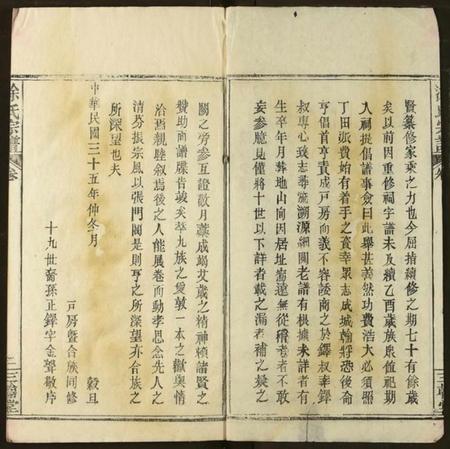 賢纂修家乘之力也今屆揞續修之期七十有餘歲
矣以前因重修祠宇譜未及續乙酉歲族衆值祀期
人祠提倡譜事僉曰此舉甚善然功費浩大必須照
丁田派費始有着手之資幸眾志成城翰將恐後俞
亨倡首亨責成戶房而義不容諉商之於鐸叔幸鐸
叔專心致志尋流溯源細閱老譜有根據未詳者有
生卒年月葬地山向因居址寫遠無從稽考者不敢
妄參臆見僅將十世以下詳者載之漏者補之歲之
關之旁參互證數月藏成竭艾歲之精神槙諸賢之
贊助而譜牒告竣矣萃九族之愛敦一本之歡輿情
洽焉親睦敘焉後之人能展卷而動孝思念先人之
清芬振宗風以張門閭是則亨之所深望亦合族之
所深望也夫
中華民國三十五年仲冬月 穀旦
戶房暨合族同修
十九世裔孫正鐸字金聲敬序
徐氏宗譜 卷
二 三翰堂